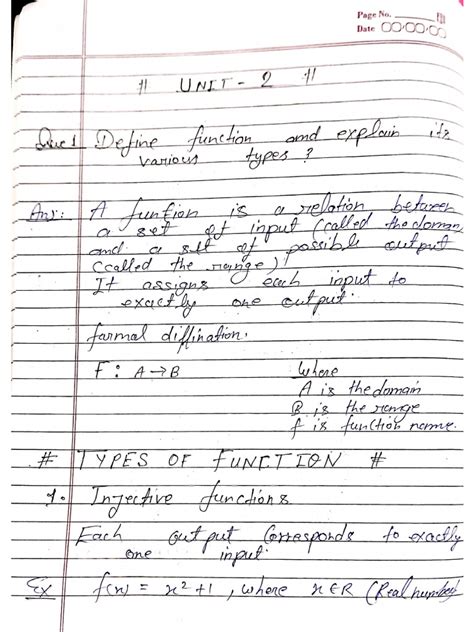 Page No.
Date
// UNIT - 2 //
Que 1 Define function and explain its
various types ?
Ans: A funtion is a relation between
a set of input (called the domain,
and a set of possible output
(called the range)
It assigns each input to
exactly one output.
farmal diffination.
F : A → B where
A is the domain
B is the range
f is function name.
# TYPES OF FUNCTION #
1. Injective functions
Each output corresponds to exactly
one input.
Ex f(x) = x² + 1 , where x ∈ R (Real number)